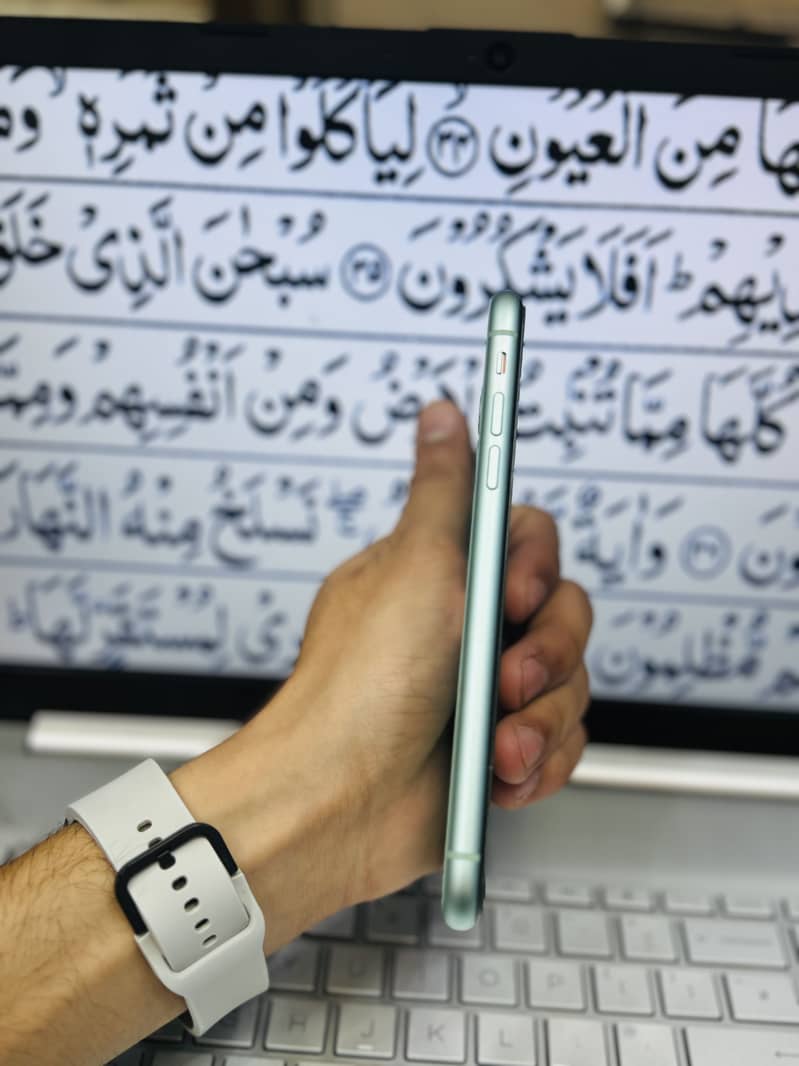 مِنَ الْعُيُوْنِ ﴿۳۴﴾ لِيَاْكُلُوْا مِنْ ثَمَرِهٖ ۙ وَمَا
اَيْدِيْهِمْ ؕ اَفَلَا يَشْكُرُوْنَ ﴿۳۵﴾ سُبْحٰنَ الَّذِىْ خَلَقَ
كُلَّهَا مِمَّا تُنْۢبِتُ الْاَرْضُ وَمِنْ اَنْفُسِهِمْ وَمِمَّا
وَاٰيَةٌ نَسْلَخُ مِنْهُ النَّهَارَ
مُّظْلِمُوْنَ لِمُسْتَقَرٍّ لَّهَا ؕ
O P
H J K L